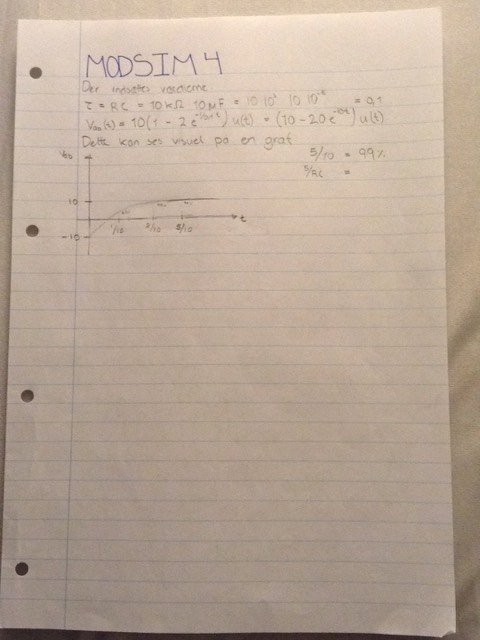 MODSIM 4
Der indsættes værdierne
τ = RC = 10 kΩ 10 μF = 10 10³ 10 10⁻⁶ = 0,1
(t) = 10(1 - 2e) u(t) = (10 - 20e⁻¹⁰ᵗ) u(t)
Dette kan ses visuel på en graf
5/10 = 99%
5/RC =
10
-10
1/10 3/10 5/10 t